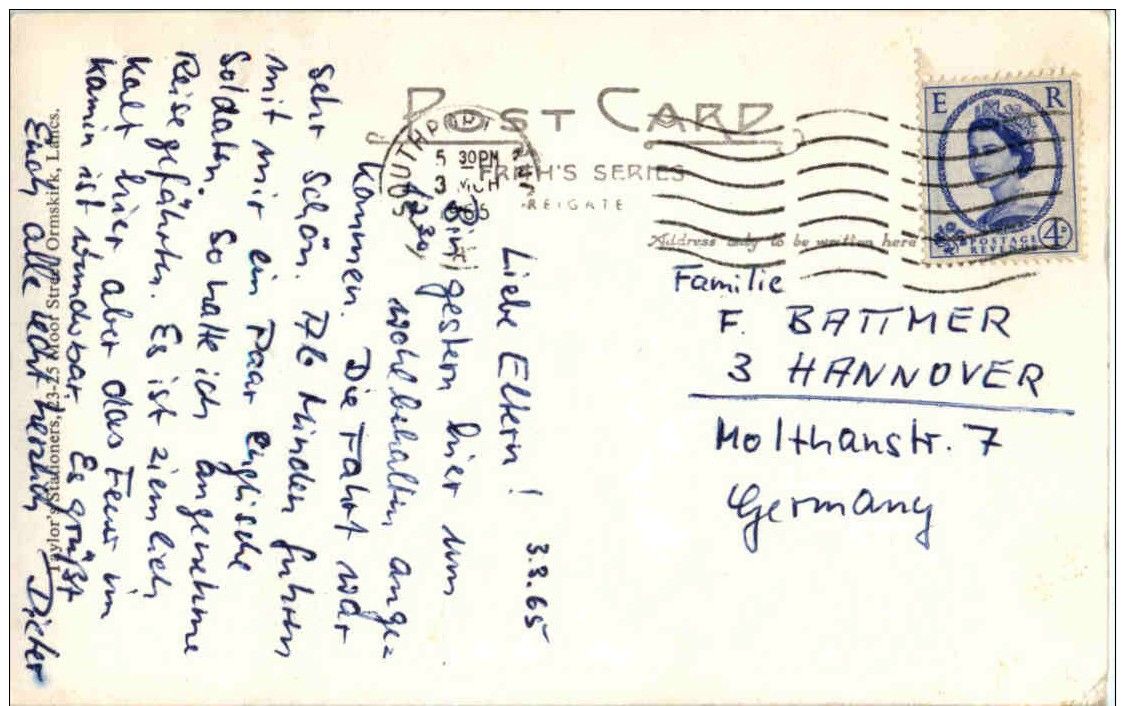 POST CARD
FRITH'S SERIES
REIGATE
Address only to be written here
E R
POSTAGE
REVENUE
4D
5 30PM
3 MCH
1965
SOUTHPORT
LANCS
Familie
F. BATTMER
3 HANNOVER
Molthanstr. 7
Germany
3.3.65
Liebe Eltern!
Bin gestern hier um
12.30 wohlbehalten ange=
kommen. Die Fahrt war
sehr schön. Ab Minden fuhren
mit mir ein Paar englische
Soldaten. So hatte ich angenehme
Reisegefährten. Es ist ziemlich
kalt hier aber das Feuer im
Kamin ist wunderbar. Es grüßt
Euch alle recht herzlich Dieter
Taylor's Stationers, 13-25 Moor Street, Ormskirk, Lancs.